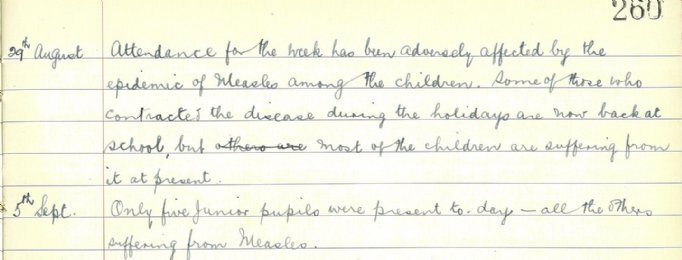 260
29th August Attendance for the week has been adversely affected by the
epidemic of Measles among the children. Some of those who
contracted the disease during the holidays are now back at
school, but others are most of the children are suffering from
it at present.
5th Sept. Only five Junior pupils were present to-day – all the others
suffering from Measles.